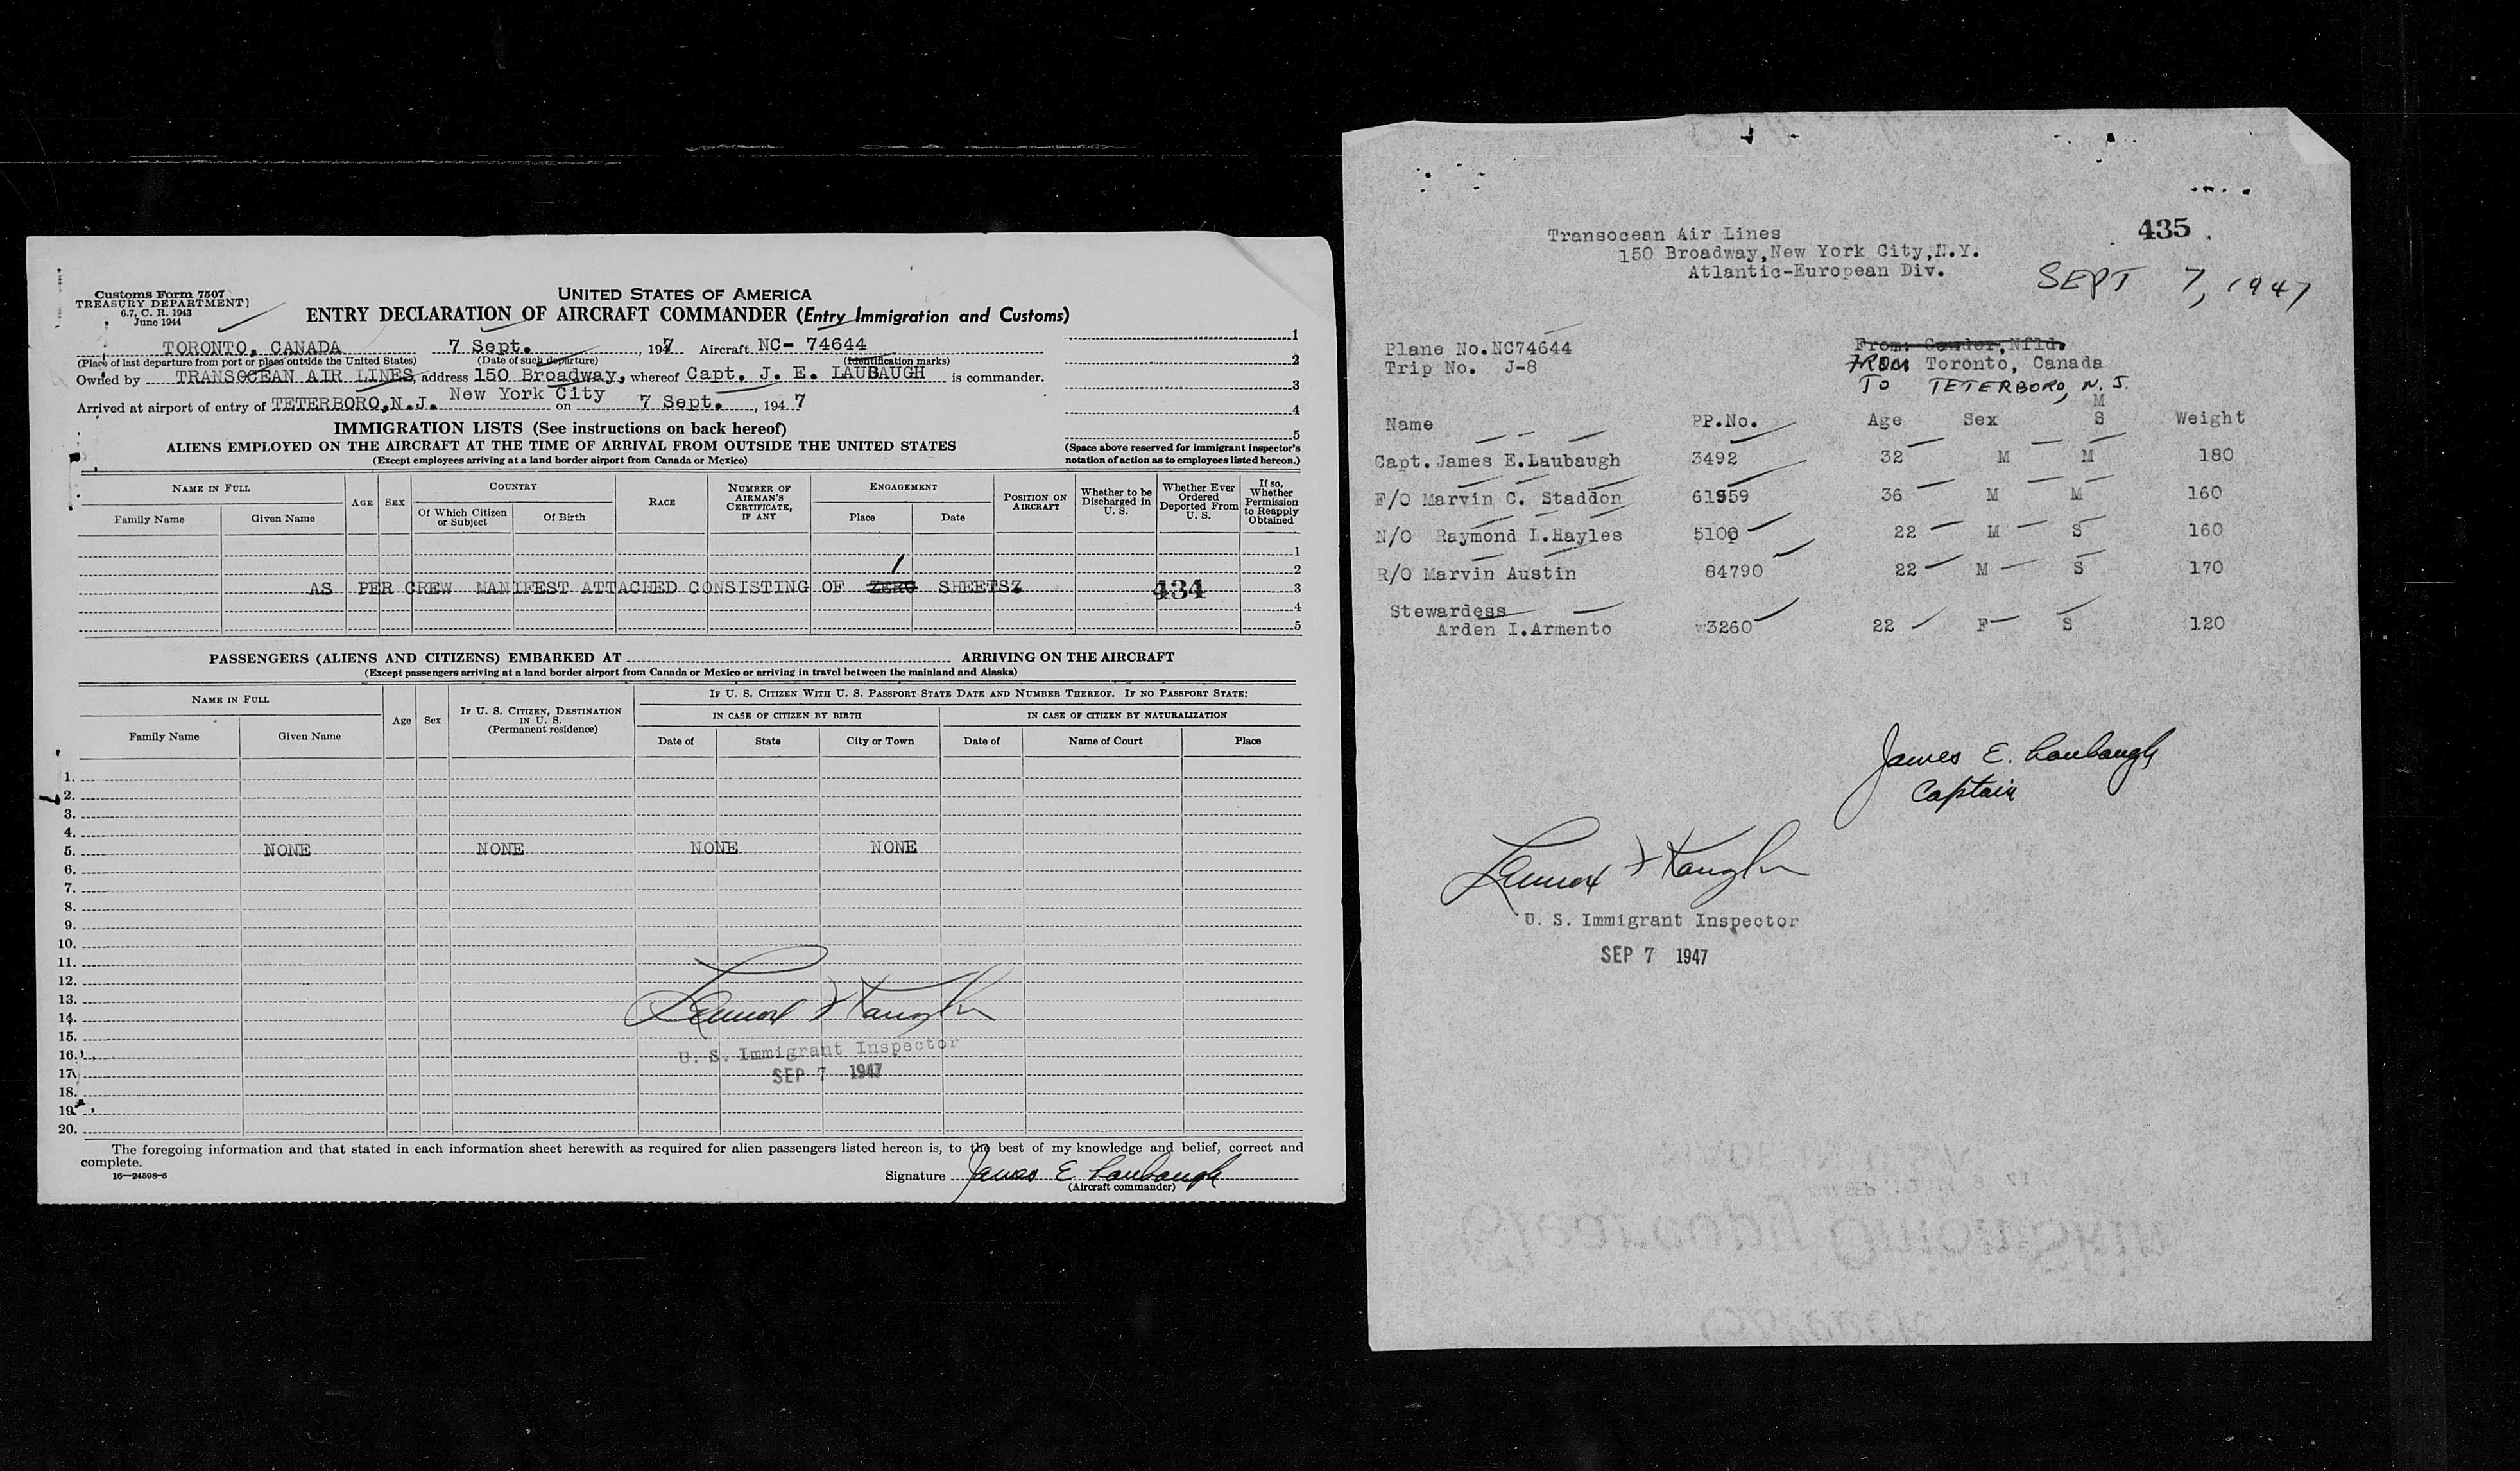 Customs Form 7507
TREASURY DEPARTMENT
6.7, C. R. 1943
June 1944
UNITED STATES OF AMERICA
ENTRY DECLARATION OF AIRCRAFT COMMANDER (Entry Immigration and Customs)
TORONTO, CANADA 7 Sept. , 1947 Aircraft NC- 74644
(Place of last departure from port or place outside the United States) (Date of such departure) (Identification marks)
Owned by TRANSOCEAN AIR LINES, address 150 Broadway, whereof Capt. J. E. LAUBAUGH is commander.
New York City
Arrived at airport of entry of TETERBORO,N.J. on 7 Sept. , 1947
1
2
3
4
5
IMMIGRATION LISTS (See instructions on back hereof)
ALIENS EMPLOYED ON THE AIRCRAFT AT THE TIME OF ARRIVAL FROM OUTSIDE THE UNITED STATES
(Except employees arriving at a land border airport from Canada or Mexico)
(Space above reserved for immigrant inspector's
notation of action as to employees listed hereon.)
NAME IN FULL
Family Name Given Name
AGE SEX
COUNTRY
Of Which Citizen or Subject Of Birth
RACE
NUMBER OF AIRMAN'S CERTIFICATE, IF ANY
ENGAGEMENT
Place Date
POSITION ON AIRCRAFT
Whether to be Discharged in U. S.
Whether Ever Ordered Deported From U. S.
If so, Whether Permission to Reapply Obtained
1
2
1
AS PER CREW MANIFEST ATTACHED CONSISTING OF ZERO SHEETSZ 434 3
4
5
PASSENGERS (ALIENS AND CITIZENS) EMBARKED AT ARRIVING ON THE AIRCRAFT
(Except passengers arriving at a land border airport from Canada or Mexico or arriving in travel between the mainland and Alaska)
NAME IN FULL
Family Name Given Name
Age Sex
IF U. S. CITIZEN, DESTINATION IN U. S.
(Permanent residence)
IF U. S. CITIZEN WITH U. S. PASSPORT STATE DATE AND NUMBER THEREOF. IF NO PASSPORT STATE:
IN CASE OF CITIZEN BY BIRTH IN CASE OF CITIZEN BY NATURALIZATION
Date of State City or Town Date of Name of Court Place
1.
2.
3.
4.
5. NONE NONE NONE NONE
6.
7.
8.
9.
10.
11.
12.
13.
14.
15.
16.
17.
18.
19.
20.
U. S. Immigrant Inspector
SEP 7 1947
The foregoing information and that stated in each information sheet herewith as required for alien passengers listed hereon is, to the best of my knowledge and belief, correct and
complete.
16—24598-5
Signature James E. Laubaugh
(Aircraft commander)
435
Transocean Air Lines
150 Broadway,New York City,N.Y.
Atlantic-European Div.
SEPT 7, 1947
Plane No.NC74644 From: Gander,Nfld.
Trip No. J-8 FROM Toronto, Canada
TO TETERBORO, N. J.
Name PP.No. Age Sex M S Weight
Capt. James E.Laubaugh 3492 32 M M 180
F/O Marvin C. Staddon 61959 36 M M 160
N/O Raymond L.Hayles 5100 22 M S 160
R/O Marvin Austin 84790 22 M S 170
Stewardess
Arden I.Armento 3260 22 F S 120
James E. Laubaugh
Captain
U. S. Immigrant Inspector
SEP 7 1947